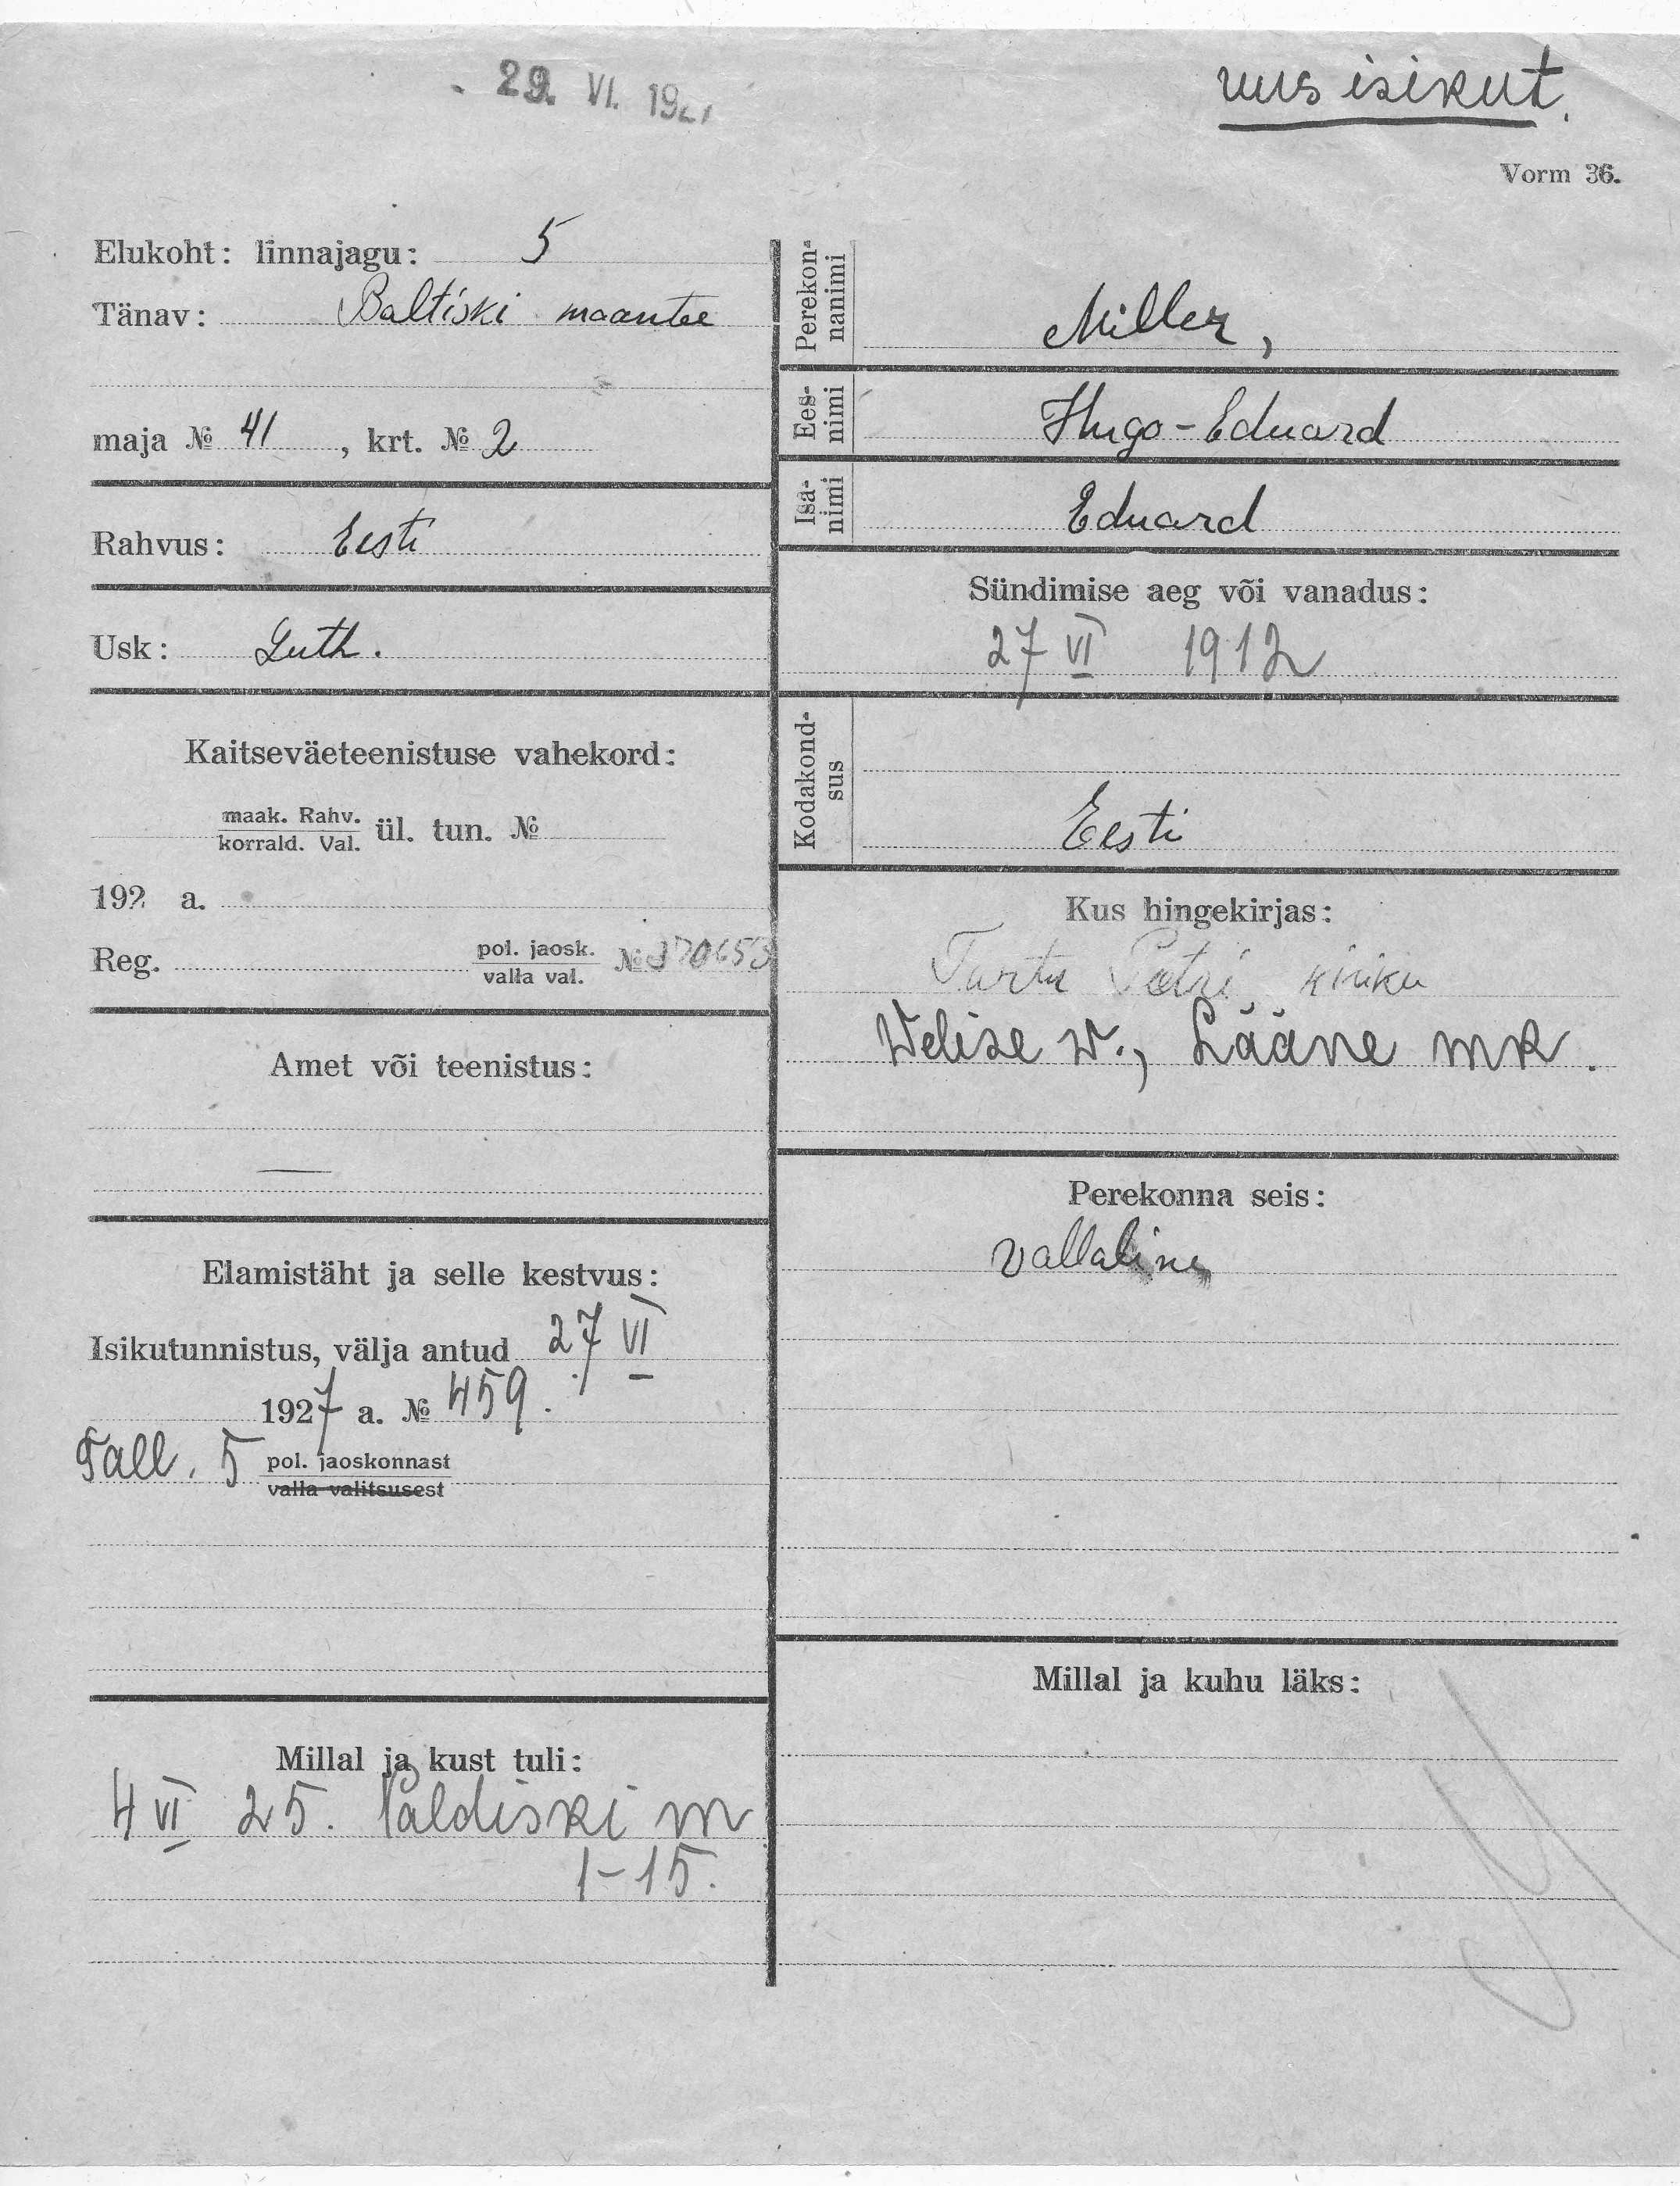 29. VI. 192
uus isikut.
Vorm 36.
Elukoht: linnajagu: 5
Tänav: Baltiski maantee
maja № 41, krt. № 2
Rahvus: Eesti
Usk: Luth.
Kaitseväeteenistuse vahekord:
maak. Rahv.
korrald. Val.
ül. tun. №
192 a.
Reg.
pol. jaosk.
valla val.
№
Amet või teenistus:
—
Elamistäht ja selle kestvus:
Isikutunnistus, välja antud 27 VI
1927 a. № 459.
Tall. 5 pol. jaoskonnast
valla valitsusest
Millal ja kust tuli:
4 VI 25. Paldiski m
1-15.
Perekon-
nanimi
Miller,
Ees-
nimi
Hugo-Eduard
Isa-
nimi
Eduard
Sündimise aeg või vanadus:
27 VI 1912
Kodakond-
sus
Eesti
Kus hingekirjas:
Tartu Petri kiriku
Welise w., Lääne mk.
Perekonna seis:
vallaline
Millal ja kuhu läks: